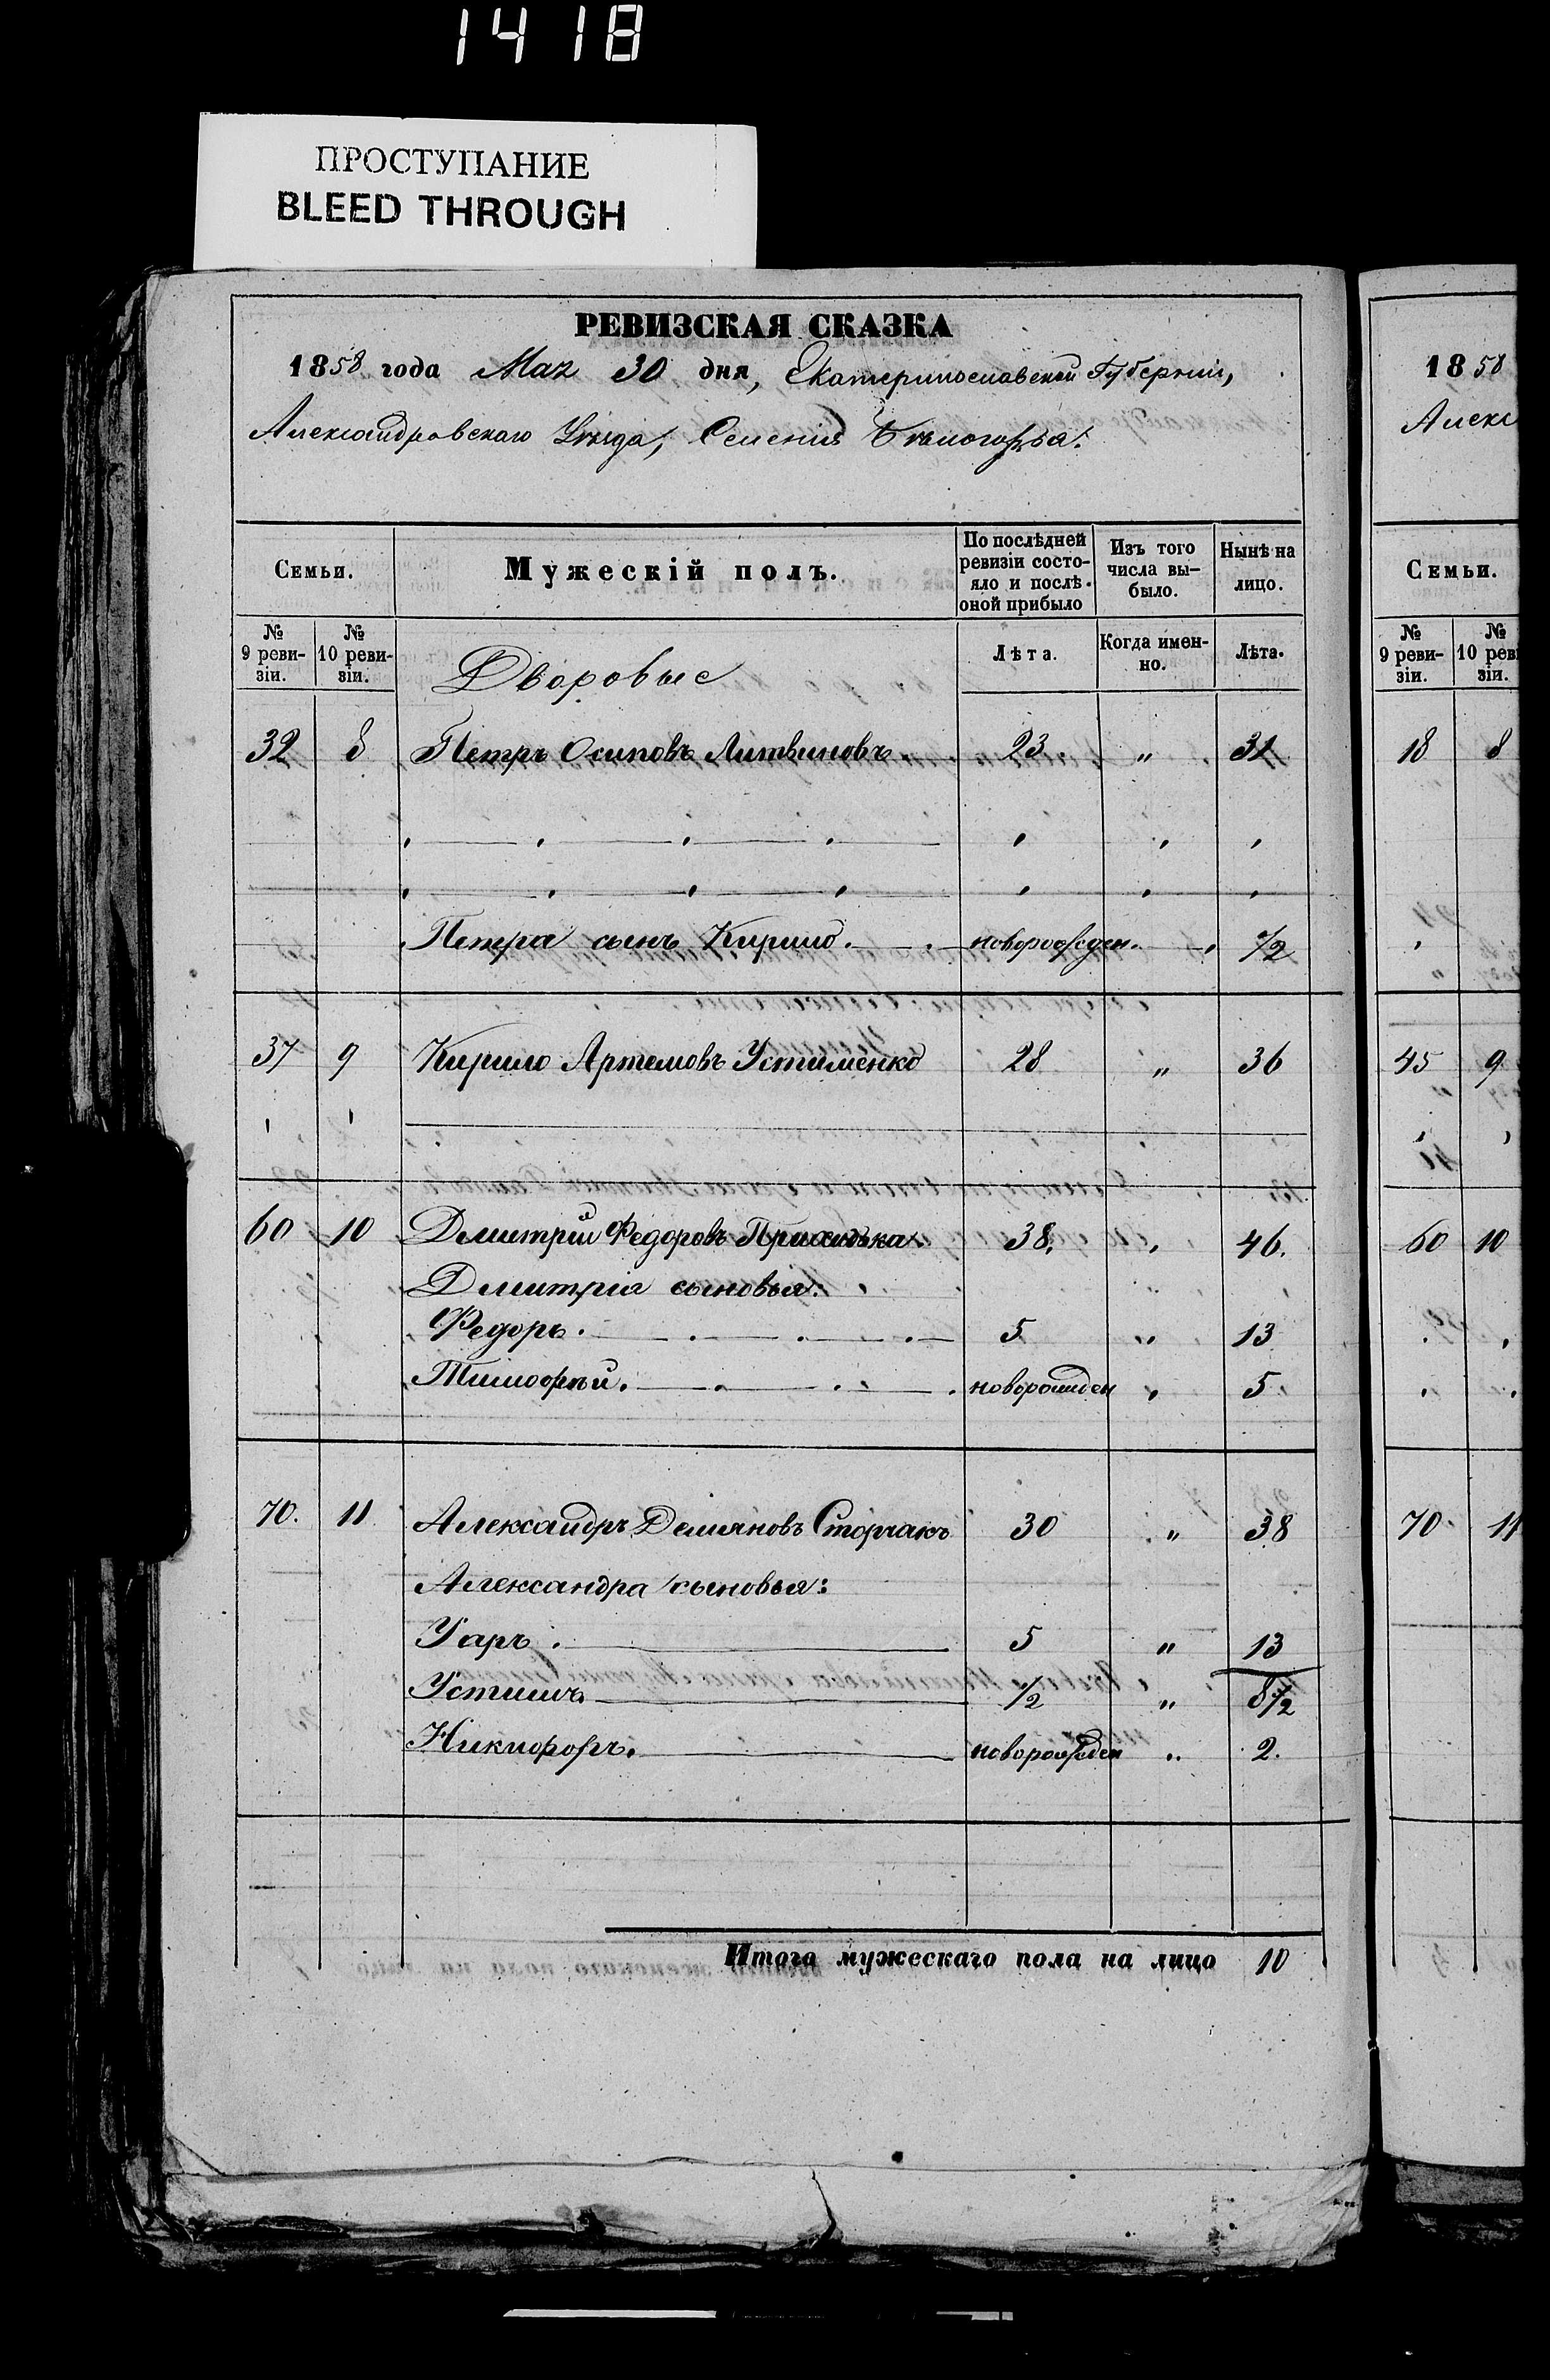 1418
ПРОСТУПАНИЕ
BLEED THROUGH
РЕВИЗСКАЯ СКАЗКА
1858 года Мая 30 дня, Екатеринославской Губерніи,
Александровскаго Уѣзда, Селенія Бѣлогорья.
Семьи.
Мужескій полъ.
По послѣдней ревизіи состояло и послѣ оной прибыло
Изъ того числа выбыло.
Нынѣ на лицо.
№ 9 ревизіи.
№ 10 ревизіи.
Дворовые
Лѣта.
Когда именно.
Лѣта.
32 8 Петръ Осиповъ Литвиновъ 23 " 31
Петра сынъ Кирило. новорожден. ½
37 9 Кирило Артемовъ Устименко 28 " 36
60 10 Дмитрій Федоровъ Приходька 38. " 46.
Дмитрія сыновья:
Федоръ. 5 " 13
Тимофѣй. новорожден " 5
70. 11 Александръ Демяновъ Сторчакъ 30 " 38
Александра сыновья:
Уаръ. 5 " 13
Устимъ ½ " 8½
Никифоръ. новорожден " 2.
Итого мужескаго пола на лицо 10
1858
Алекс
Семьи.
№ 9 ревизіи.
№ 10 реви
зіи.
18 8
45 9
60 10
70 11